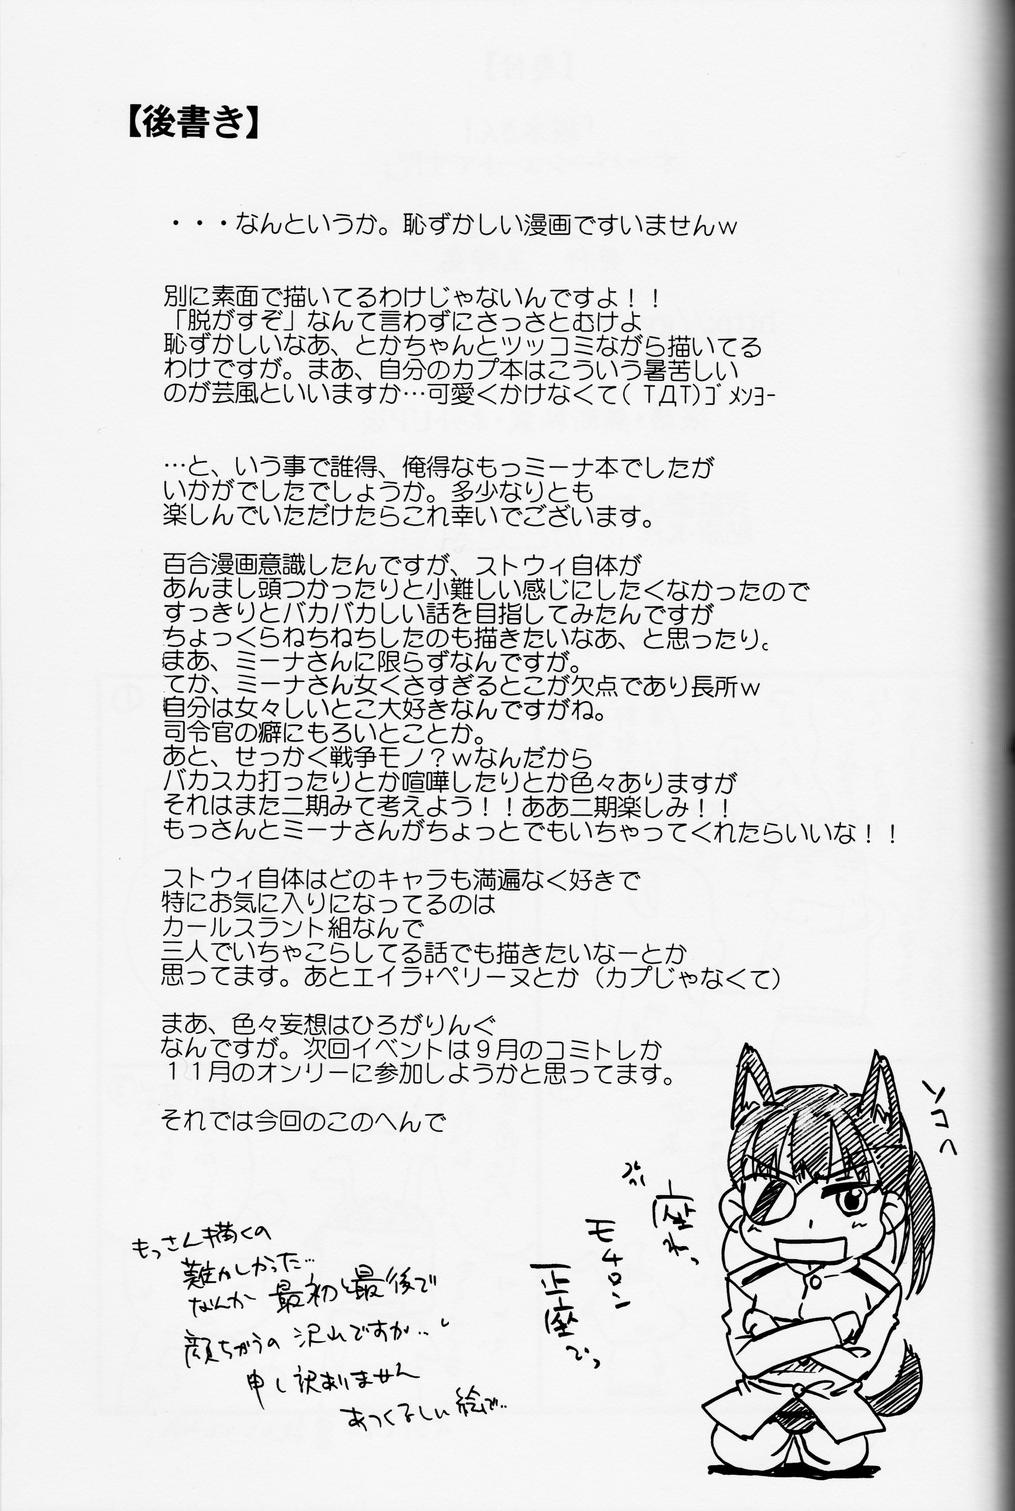 【後書き】
・・・なんというか。恥ずかしい漫画ですいませんｗ
別に素面で描いてるわけじゃないんですよ！！
「脱がすぞ」なんて言わずにさっさとむけよ
恥ずかしいなあ、とかちゃんとツッコミながら描いてる
わけですが。まあ、自分のカプ本はこういう暑苦しい
のが芸風といいますか…可愛くかけなくて( TДT)ｺﾞﾒﾝﾖｰ
…と、いう事で誰得、俺得なもっミーナ本でしたが
いかがでしたでしょうか。多少なりとも
楽しんでいただけたらこれ幸いでございます。
百合漫画意識したんですが、ストウィ自体が
あんまし頭つかったりと小難しい感じにしたくなかったので
すっきりとバカバカしい話を目指してみたんですが
ちょっくらねちねちしたのも描きたいなあ、と思ったり。
まあ、ミーナさんに限らずなんですが。
てか、ミーナさん女くさすぎるとこが欠点であり長所ｗ
自分は女々しいとこ大好きなんですがね。
司令官の癖にもろいとことか。
あと、せっかく戦争モノ？ｗなんだから
バカスカ打ったりとか喧嘩したりとか色々ありますが
それはまた二期みて考えよう！！ああ二期楽しみ！！
もっさんとミーナさんがちょっとでもいちゃってくれたらいいな！！
ストウィ自体はどのキャラも満遍なく好きで
特にお気に入りになってるのは
カールスラント組なんで
三人でいちゃこらしてる話でも描きたいなーとか
思ってます。あとエイラ+ペリーヌとか（カプじゃなくて）
まあ、色々妄想はひろがりんぐ
なんですが。次回イベントは９月のコミトレか
１１月のオンリーに参加しようかと思ってます。
それでは今回のこのへんで
ソコヘ
座れっ
モチロン
正座でっ
もっさん描くの
難かしかった…
なんか最初と最後で
顔ちがうの沢山ですが…
申し訳ありません
あつくるしい絵で…